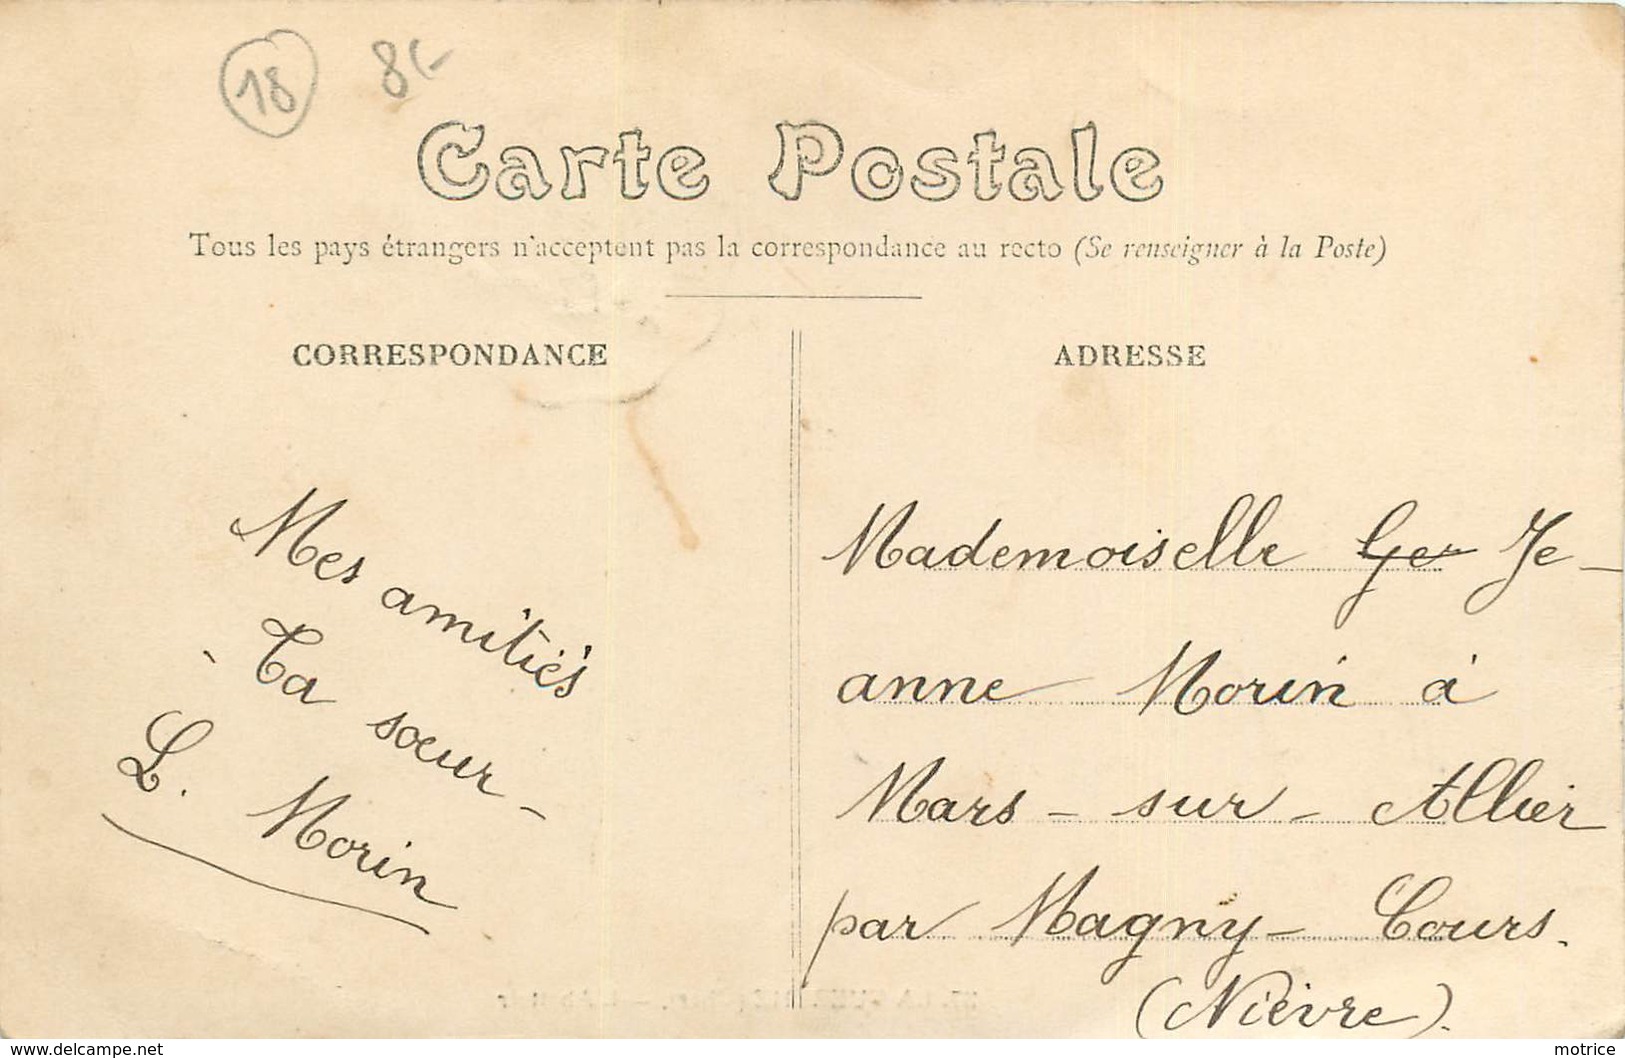 18 8€
Carte Postale
Tous les pays étrangers n'acceptent pas la correspondance au recto (Se renseigner à la Poste)
CORRESPONDANCE
Mes amitiés
- Ta sœur -
L. Morin
ADRESSE
Mademoiselle Ger Je-
anne Morin à
Mars-sur-Allier
par Magny-Cours.
(Nièvre).
www.delcampe.net
motrice